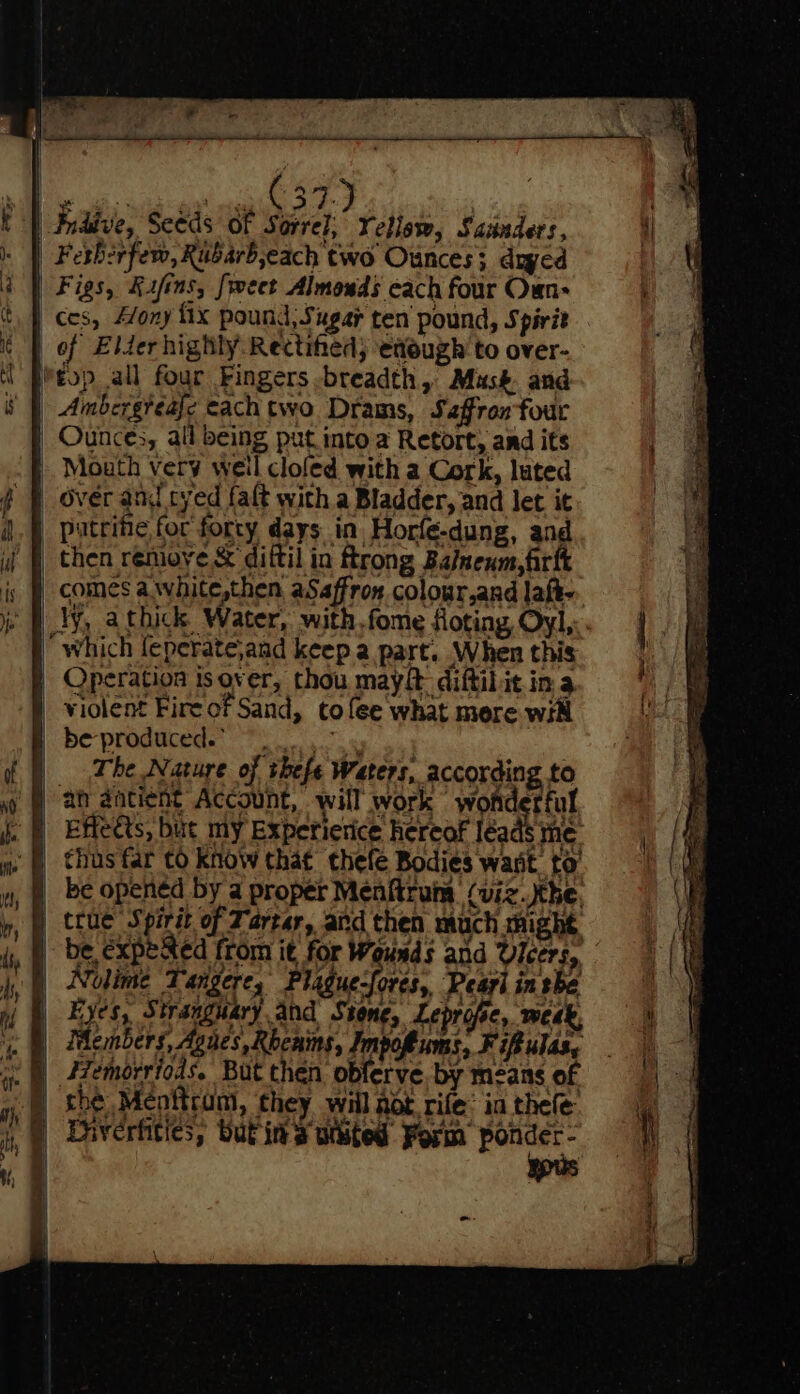 (37.)
Indive, Seeds of Sorrel, Yellow, Saunders,
Fetherfew, Rubarb, each two Ounces; dryed
Figs, Raſins, ſweet Almonds each four Oun-
ces, Hony ſix pound, Sugar ten pound, Spirit
of Elder highly Rectified, enough to over-
top all four Fingers breadth, Musk and
Ambergreaſe each two Drams, Saffron four
Ounces, all being put into a Retort, and its
Mouth very well cloſed with a Cork, luted
over and tyed faſt with a Bladder, and let it
putrifie for forty days in Horſe-dung, and
then remove & diſtil in ſtrong Balneum, firſt
comes a white, then a Saffron colour, and laſt-
ly, a thick Water, with ſome floting Oyl,
which ſeperate, and keep a part. When this
Operation is over, thou mayſt diſtil it in a
violent Fire of Sand, to ſee what more will
be produced.
The Nature of theſe Waters, according to
an antient Account, will work wonderful
Effects, but my Experience hereof leads me
thus far to know that theſe Bodies want to
be opened by a proper Menſtrum (viz. the
true Spirit of Tartar, and then much might
be expected from it for Wounds and Ulcers,
Nolime Tangere, Plague-ſores, Pearl in the
Eyes, Stranguary and Stone, Leproſie, weak
Members, Agues, Rheums, Impoſtums, Fiſtulas,
Hemorriods. But then obſerve by means of
the Menſtrum, they will not riſe in theſe
Diverſities, but in a united Form ponder-